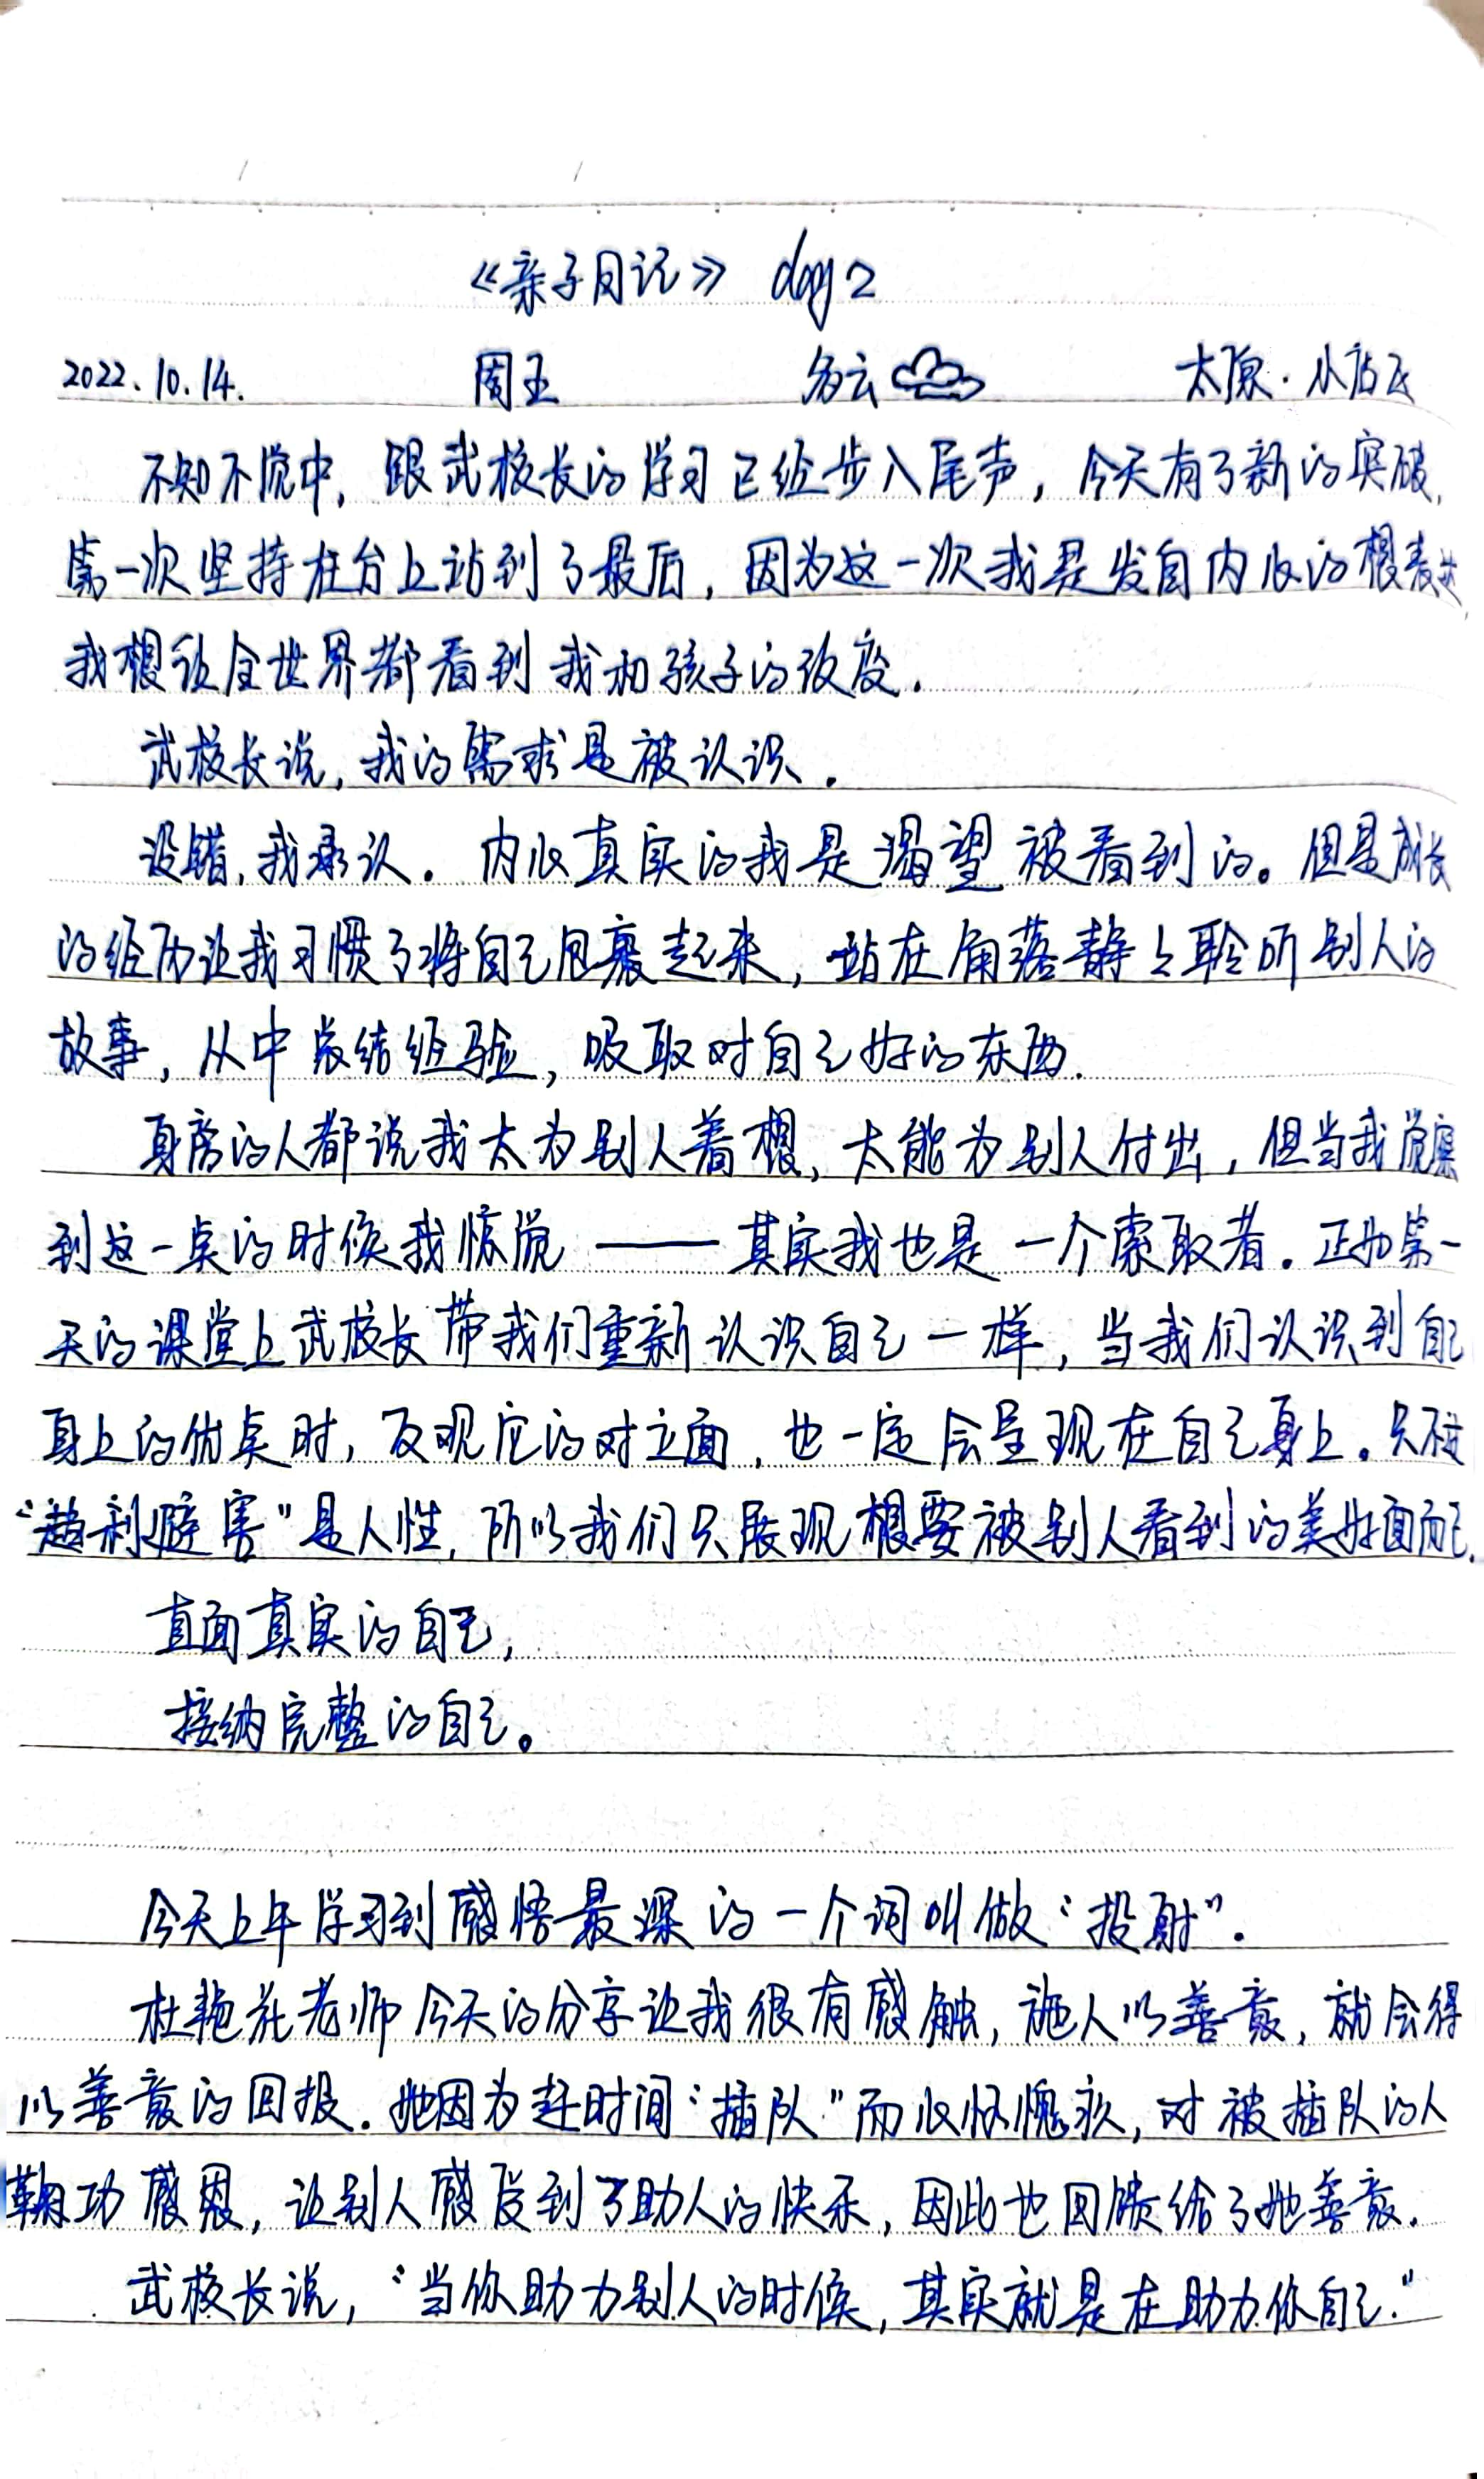 《亲子日记》 day2
2022.10.14. 周五 多云 太原·小店区
不知不觉中，跟武校长的学习已经步入尾声，今天有了新的突破，
第一次坚持在台上站到了最后，因为这一次我是发自内心的想表达，
我想让全世界都看到我和孩子的改变．
武校长说，我的需求是被认识．
没错，我承认．内心真实的我是渴望被看到的。但是成长
的经历让我习惯了将自己包裹起来，站在角落静々聆听别人的
故事，从中总结经验，吸取对自己好的东西．
身旁的人都说我太为别人着想，太能为别人付出，但当我觉察
到这一点的时候我惊觉——其实我也是一个索取者．正如第一
天的课堂上武校长带我们重新认识自己一样，当我们认识到自己
身上的优点时，反观它的对立面，也一定会呈现在自己身上。只不过
“趋利避害”是人性，所以我们只展现想要被别人看到的美好面而已．
直面真实的自己，
接纳完整的自己。
今天上午学习到感悟最深的一个词叫做“投射”．
杜艳花老师今天的分享让我很有感触，施人以善意，就会得
以善意的回报．她因为赶时间“插队”而心怀愧疚，对被插队的人
鞠功感恩，让别人感受到了助人的快乐，因此也回馈给了她善意．
武校长说，“当你助力别人的时候，其实就是在助力你自己．”